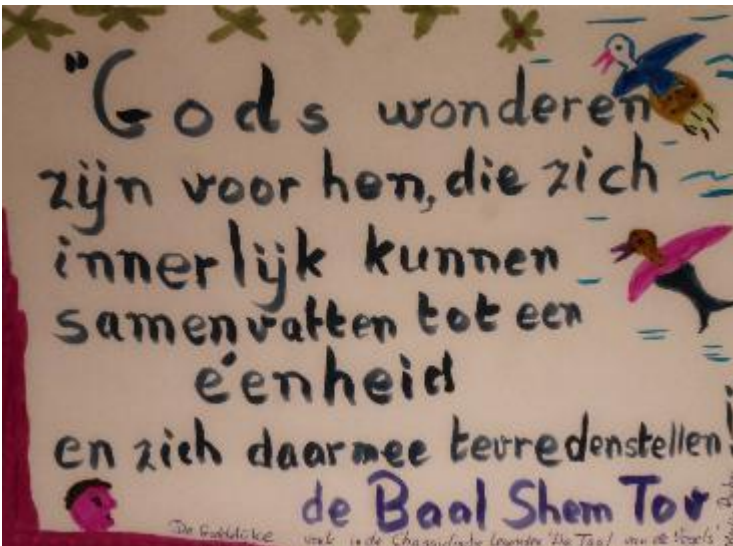 "Gods wonderen
zijn voor hen, die zich
innerlijk kunnen
samenvatten tot een
éenheid
en zich daarmee tevredenstellen!
de Baal Shem Tov
De Goddelijke vonk in de Chassidische legende 'De Taal van de Vogels'